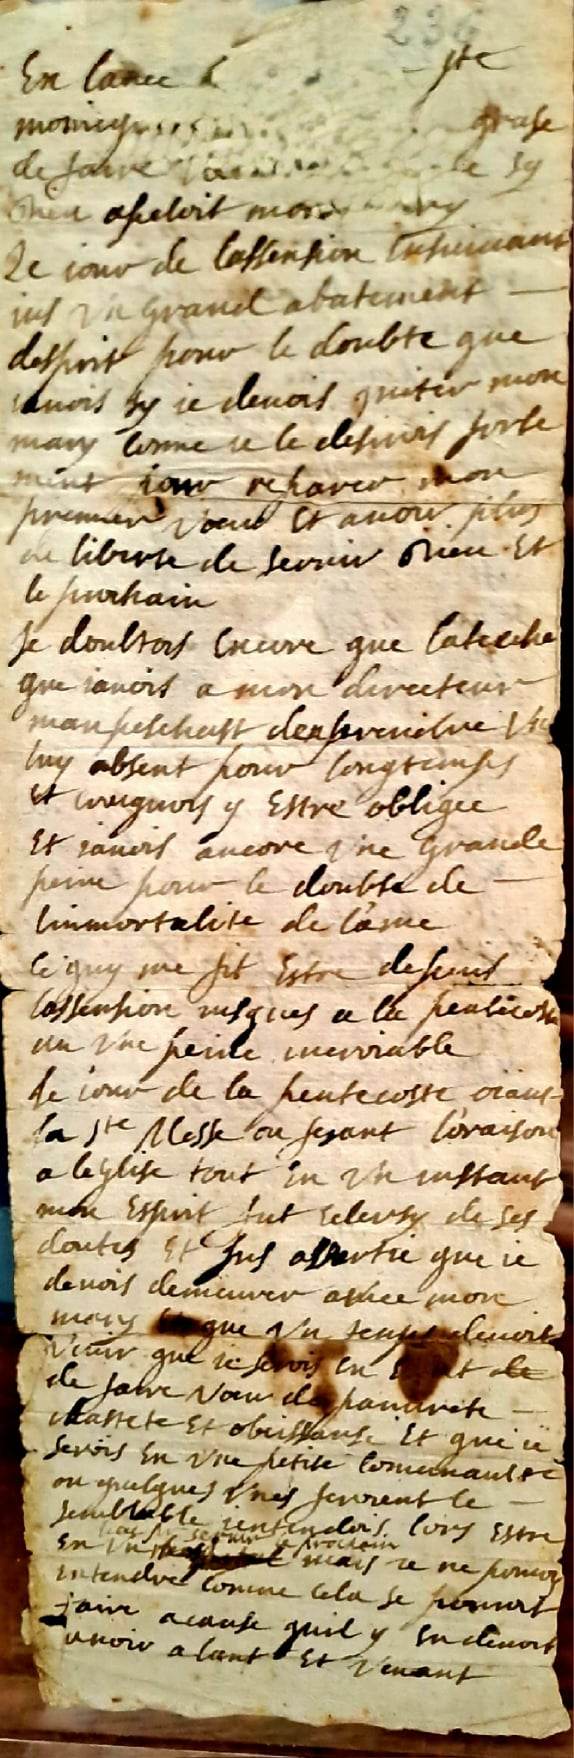 236
En lanee ste
monicque grase
de faire veu de sy
Dieu apeloit mon mary
Le iour de lassension ensuiuant
ius vn grand abatement
desprit pour le doubte que
iauois sy ie deuois quiter mon
mary comme ie le desirois forte
ment pour reparer mon
premier voeu et auoir plus
de liberte de seruir Dieu et
le prochain
Je doubtois encore que latache
que iauois a mon directeur
manpeschast den prendre vn
luy absent pour longtemps
et creignois y estre obligee
Et iauois ancore vne grande
peine pour le doubte de
linmortalite de lame
ce quy me fit estre depuis
lassension iusques a la pentecoste
en vne peine incroiable
Le iour de la pentecoste oiant
la ste Messe ou fesant loraison
a leglise tout en vn instant
mon esprit fut eclersy de ses
doutes et fus assertie que ie
deuois demeurer auec mon
mary et que vn temps deuoit
venir que ie serois en estat de
de faire voeu de pauurete
chastete et obeissanse et que ie
serois en vne petite communaute
ou quelques vnes feroient le
semblable ientendois lors estre
en vn lieu pour seruir le prochain mais ie ne pouuois
entendre comme cela se pouuoit
faire acause quil y en deuoit
auoir alant et venant